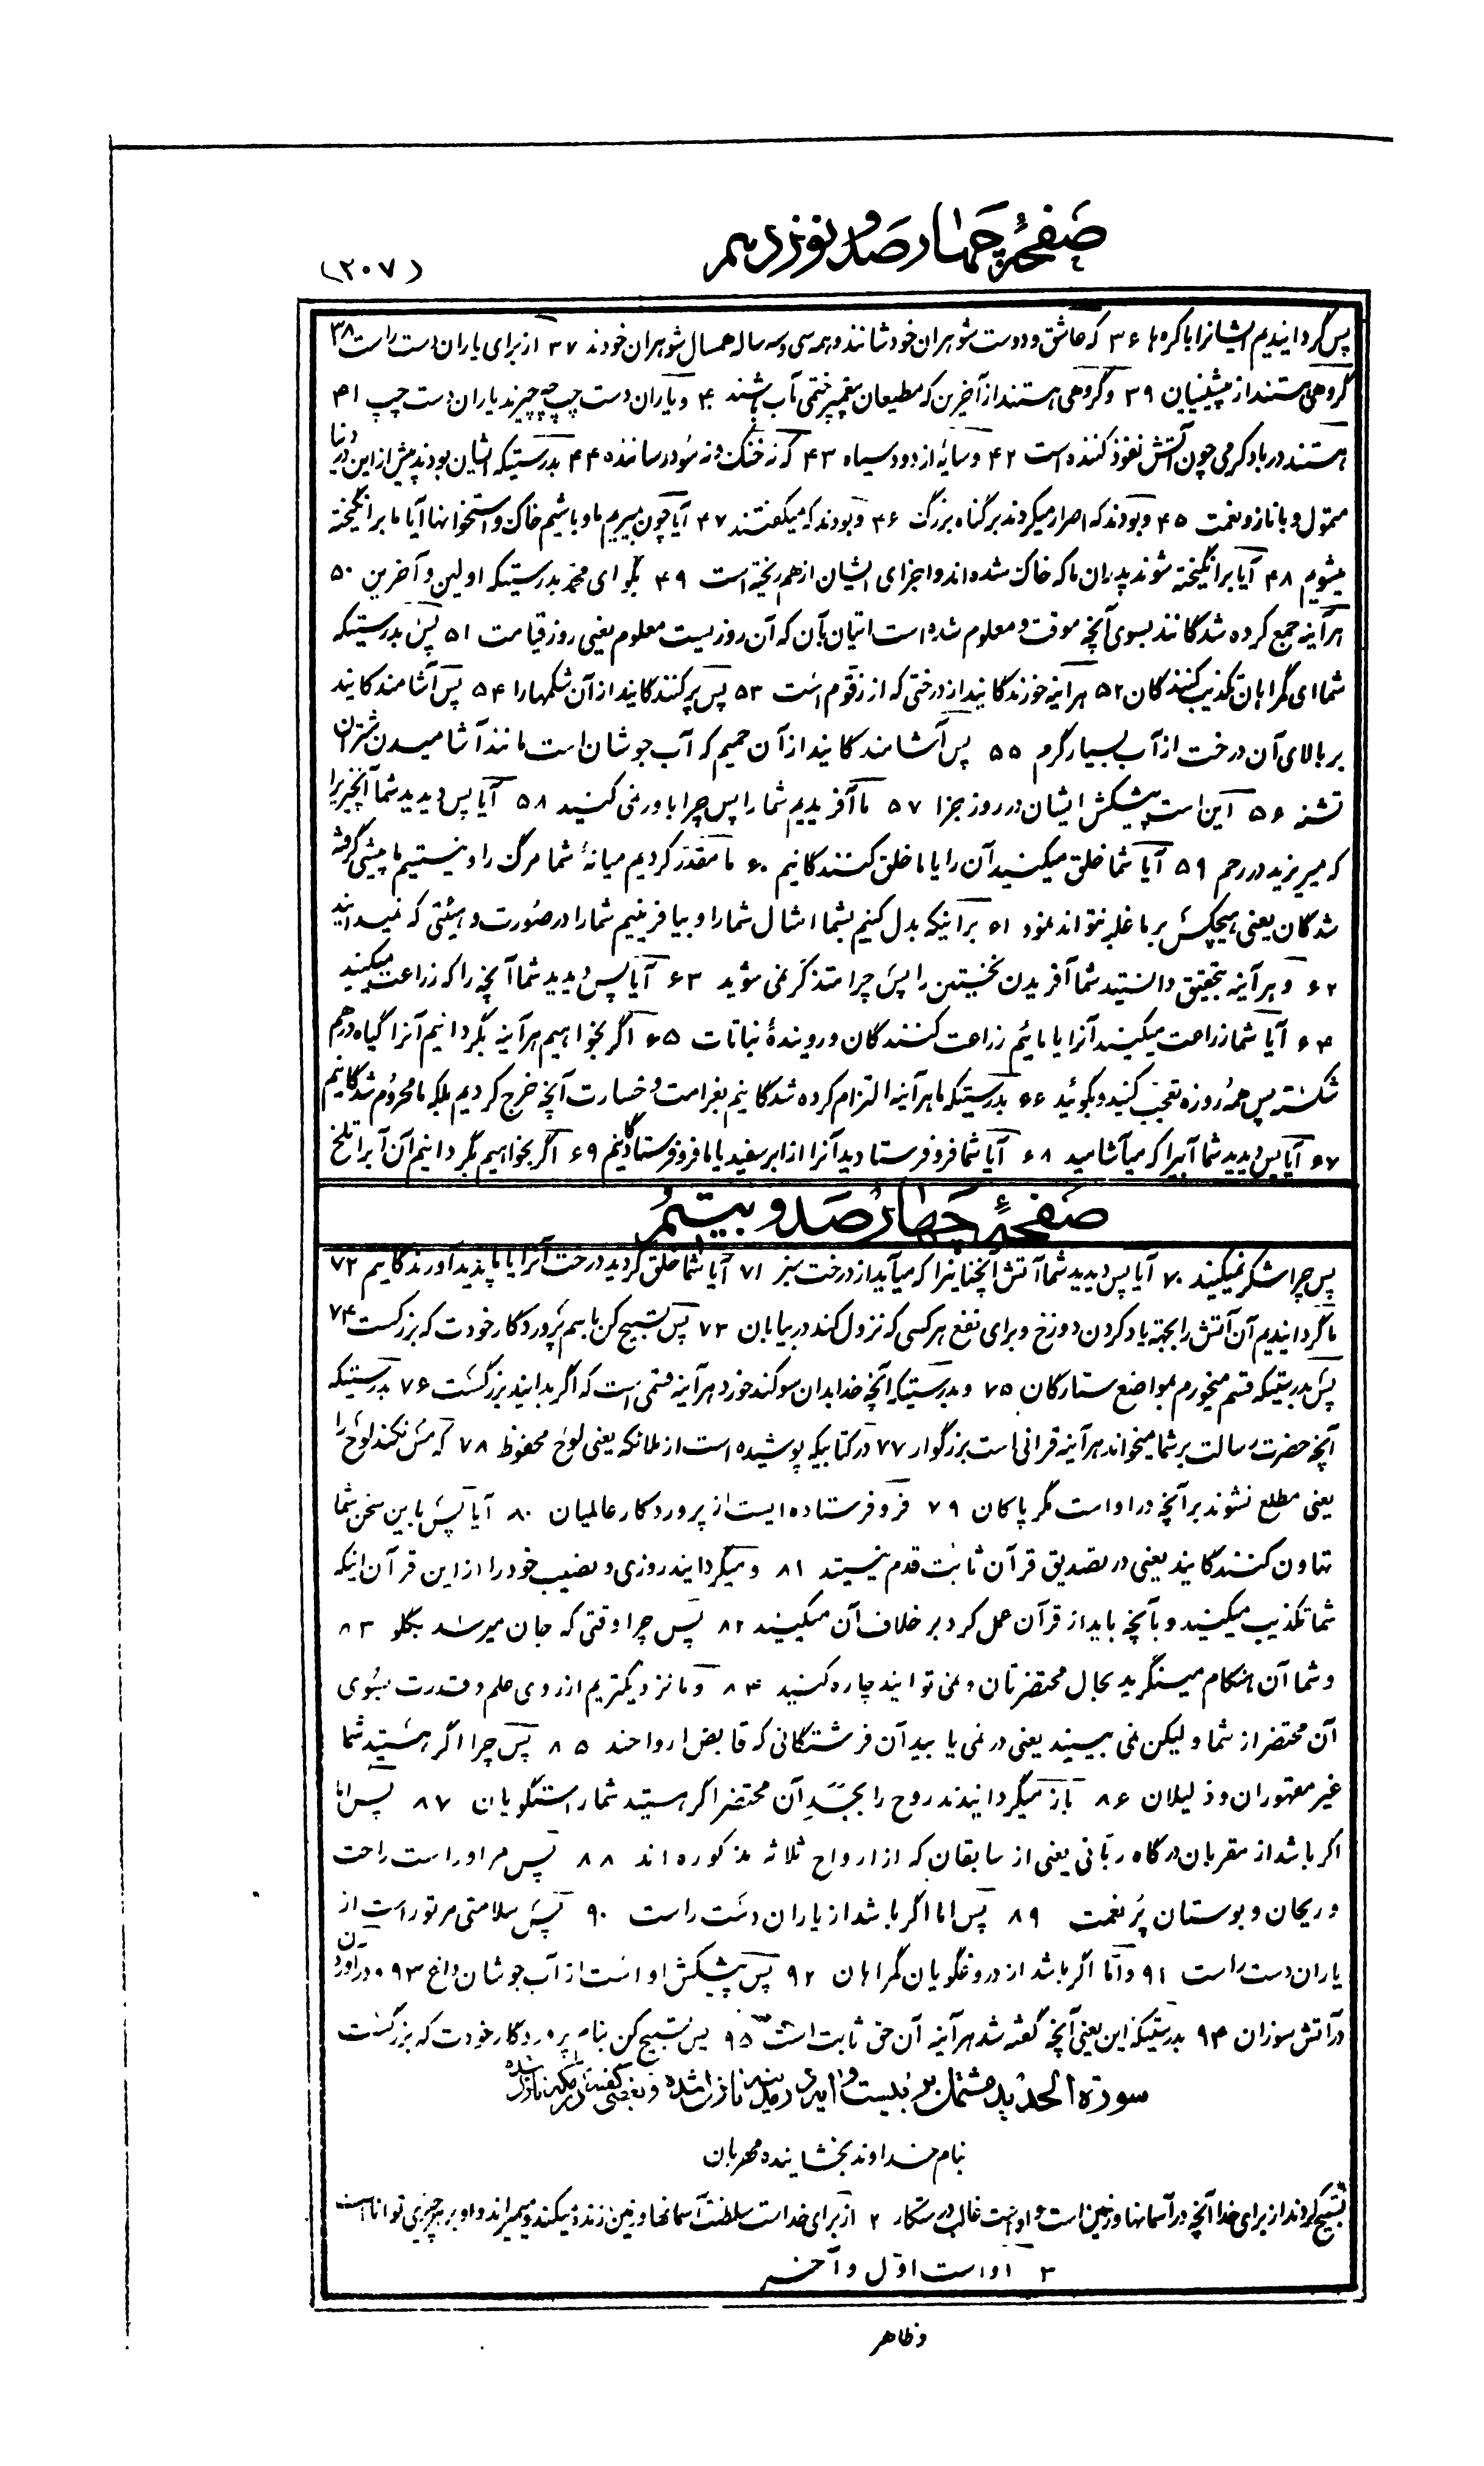 صفحهٔ چهارصد و نوزدهم
(۲۰۷)
پس گردانیدیم ایشانرا باکره‌ها ۳۶ که عاشق و دوست شوهران خودشانند و همه سی و سه ساله همسال شوهران خودند ۳۷ از برای یاران دست راست ۳۸
گروهی هستند از پیشینیان ۳۹ و گروهی هستند از آخرین که مطیعان پیغمبر ختمی مآب باشند ۴۰ و یاران دست چپ چه چیزند یاران دست چپ ۴۱
هستند در باد گرمی چون آتش نفوذ کننده است ۴۲ و سایهٔ از دود سیاه ۴۳ که نه خنک و نه سود رساننده ۴۴ بدرستیکه ایشان بودند پیش از این در دنیا
متمول و با ناز و نعمت ۴۵ و بودند که اصرار میکردند بر گناه بزرگ ۴۶ و بودند که میگفتند ۴۷ آیا چون بمیریم ما و باشیم خاک و استخوانها آیا ما برانگیخته
میشویم ۴۸ آیا برانگیخته شوند پدران ما که خاک شده‌اند و اجزای ایشان از هم ریخته است ۴۹ بگو ای محمد بدرستیکه اولین و آخرین ۵۰
هرآینه جمع کرده شدگانند بسوی آنچه موقت و معلوم شده است اتیان بآن که آن روزیست معلوم یعنی روز قیامت ۵۱ پس بدرستیکه
شما ای گمراهان تکذیب کنندگان ۵۲ هرآینه خورندگانید از درختی که از زقوم است ۵۳ پس پر کنندگانید از آن شکمها را ۵۴ پس آشامندگانید
بر بالای آن درخت از آب بسیار گرم ۵۵ پس آشامندگانید از آن حمیم که آب جوشان است مانند آشامیدن شتران
تشنه ۵۶ این است پیشکش ایشان در روز جزا ۵۷ ما آفریدیم شما را پس چرا باور نمی کنید ۵۸ آیا پس دیدید شما آنچیزیرا
که میریزید در رحم ۵۹ آیا شما خلق میکنید آن را یا ما خلق کنندگانیم ۶۰ ما مقدر کردیم میانهٔ شما مرگ را و نیستیم ما پیشی گرفته
شدگان یعنی هیچکس بر ما غلبه نتواند نمود ۶۱ بر اینکه بدل کنیم بشما امثال شما را و بیافرینیم شما را در صورت و هیئتی که نمیدانید
۶۲ و هرآینه بتحقیق دانستید شما آفریدن نخستین را پس چرا متذکر نمی شوید ۶۳ آیا پس دیدید شما آنچه را که زراعت میکنید
۶۴ آیا شما زراعت میکنید آنرا یا مائیم زراعت کنندگان و رویندهٔ نباتات ۶۵ اگر بخواهیم هرآینه بگردانیم آنرا گیاه درهم
شکسته پس همه روزه تعجب کنید و بگوئید ۶۶ بدرستیکه ما هرآینه التزام کرده شدگانیم بغرامت و خسارت آنچه خرج کردیم بلکه ما محروم شدگانیم
۶۷ آیا پس دیدید شما آبیرا که میآشامید ۶۸ آیا شما فرو فرستادید آنرا از ابر سفید یا ما فرو فرستادگانیم ۶۹ اگر بخواهیم بگردانیم آن آبرا تلخ
صفحهٔ چهارصد و بیستم
پس چرا شکر نمیکنید ۷۰ آیا پس دیدید شما آتش آنچنانیرا که میآید از درخت سبز ۷۱ آیا شما خلق کردید درخت آنرا یا ما پدید آورندگانیم ۷۲
ما گردانیدیم آن آتش را بجهة یاد کردن دوزخ و برای نفع هر کسی که نزول کند در بیابان ۷۳ پس تسبیح کن باسم پروردگار خودت که بزرگست ۷۴
پس بدرستیکه قسم میخورم بمواضع ستارگان ۷۵ و بدرستیکه آنچه خدا بدان سوگند خورد هرآینه قسمی است که اگر بدانید بزرگست ۷۶ بدرستیکه
آنچه حضرت رسالت بر شما میخواند هرآینه قرآنی است بزرگوار ۷۷ در کتابیکه پوشیده است از ملائکه یعنی لوح محفوظ ۷۸ که مس نکند لوح را
یعنی مطلع نشوند بر آنچه در او است مگر پاکان ۷۹ فرو فرستاده ایست از پروردگار عالمیان ۸۰ آیا پس باین سخن شما
تهاون کنندگانید یعنی در تصدیق قرآن ثابت قدم نیستید ۸۱ و میگردانید روزی و نصیب خود را از این قرآن اینکه
شما تکذیب میکنید و بآنچه باید از قرآن عمل کرد بر خلاف آن میکنید ۸۲ پس چرا وقتی که جان میرسد بگلو ۸۳
و شما آن هنگام مینگرید بحال محتضرتان و نمی توانید چاره کنید ۸۴ و ما نزدیکتریم از روی علم و قدرت بسوی
آن محتضر از شما و لیکن نمی بینید یعنی در نمی یابید آن فرشتگانی که قابض ارواحند ۸۵ پس چرا اگر هستید شما
غیر مقهوران و ذلیلان ۸۶ باز میگردانیدند روح را بجسد آن محتضر اگر هستید شما راستگویان ۸۷ پس اما
اگر باشد از مقربان درگاه ربانی یعنی از سابقان که از ارواح ثلاثه مذکوره‌اند ۸۸ پس مر او راست راحت
و ریحان و بوستان پر نعمت ۸۹ پس اما اگر باشد از یاران دست راست ۹۰ پس سلامتی مر تو راست از
یاران دست راست ۹۱ و اما اگر باشد از دروغگویان گمراهان ۹۲ پس پیشکش او است از آب جوشان داغ ۹۳ و در آوردن
در آتش سوزان ۹۴ بدرستیکه این یعنی آنچه گفته شد هرآینه آن حق ثابت است ۹۵ پس تسبیح کن بنام پروردگار خودت که بزرگست
سورة الحدید مشتمل بر بیست و آیه در مدینه نازل شده و بعضی گفته‌اند در مکه نازل شده
بنام خداوند بخشاینده مهربان
تسبیح کردند از برای خدا آنچه در آسمانها و زمین است و او است غالب درستکار ۲ از برای خداست سلطنت آسمانها و زمین زنده میکند و میمیراند و او بر هر چیزی توانا است
۳ اوست اول و آخر
و ظاهر